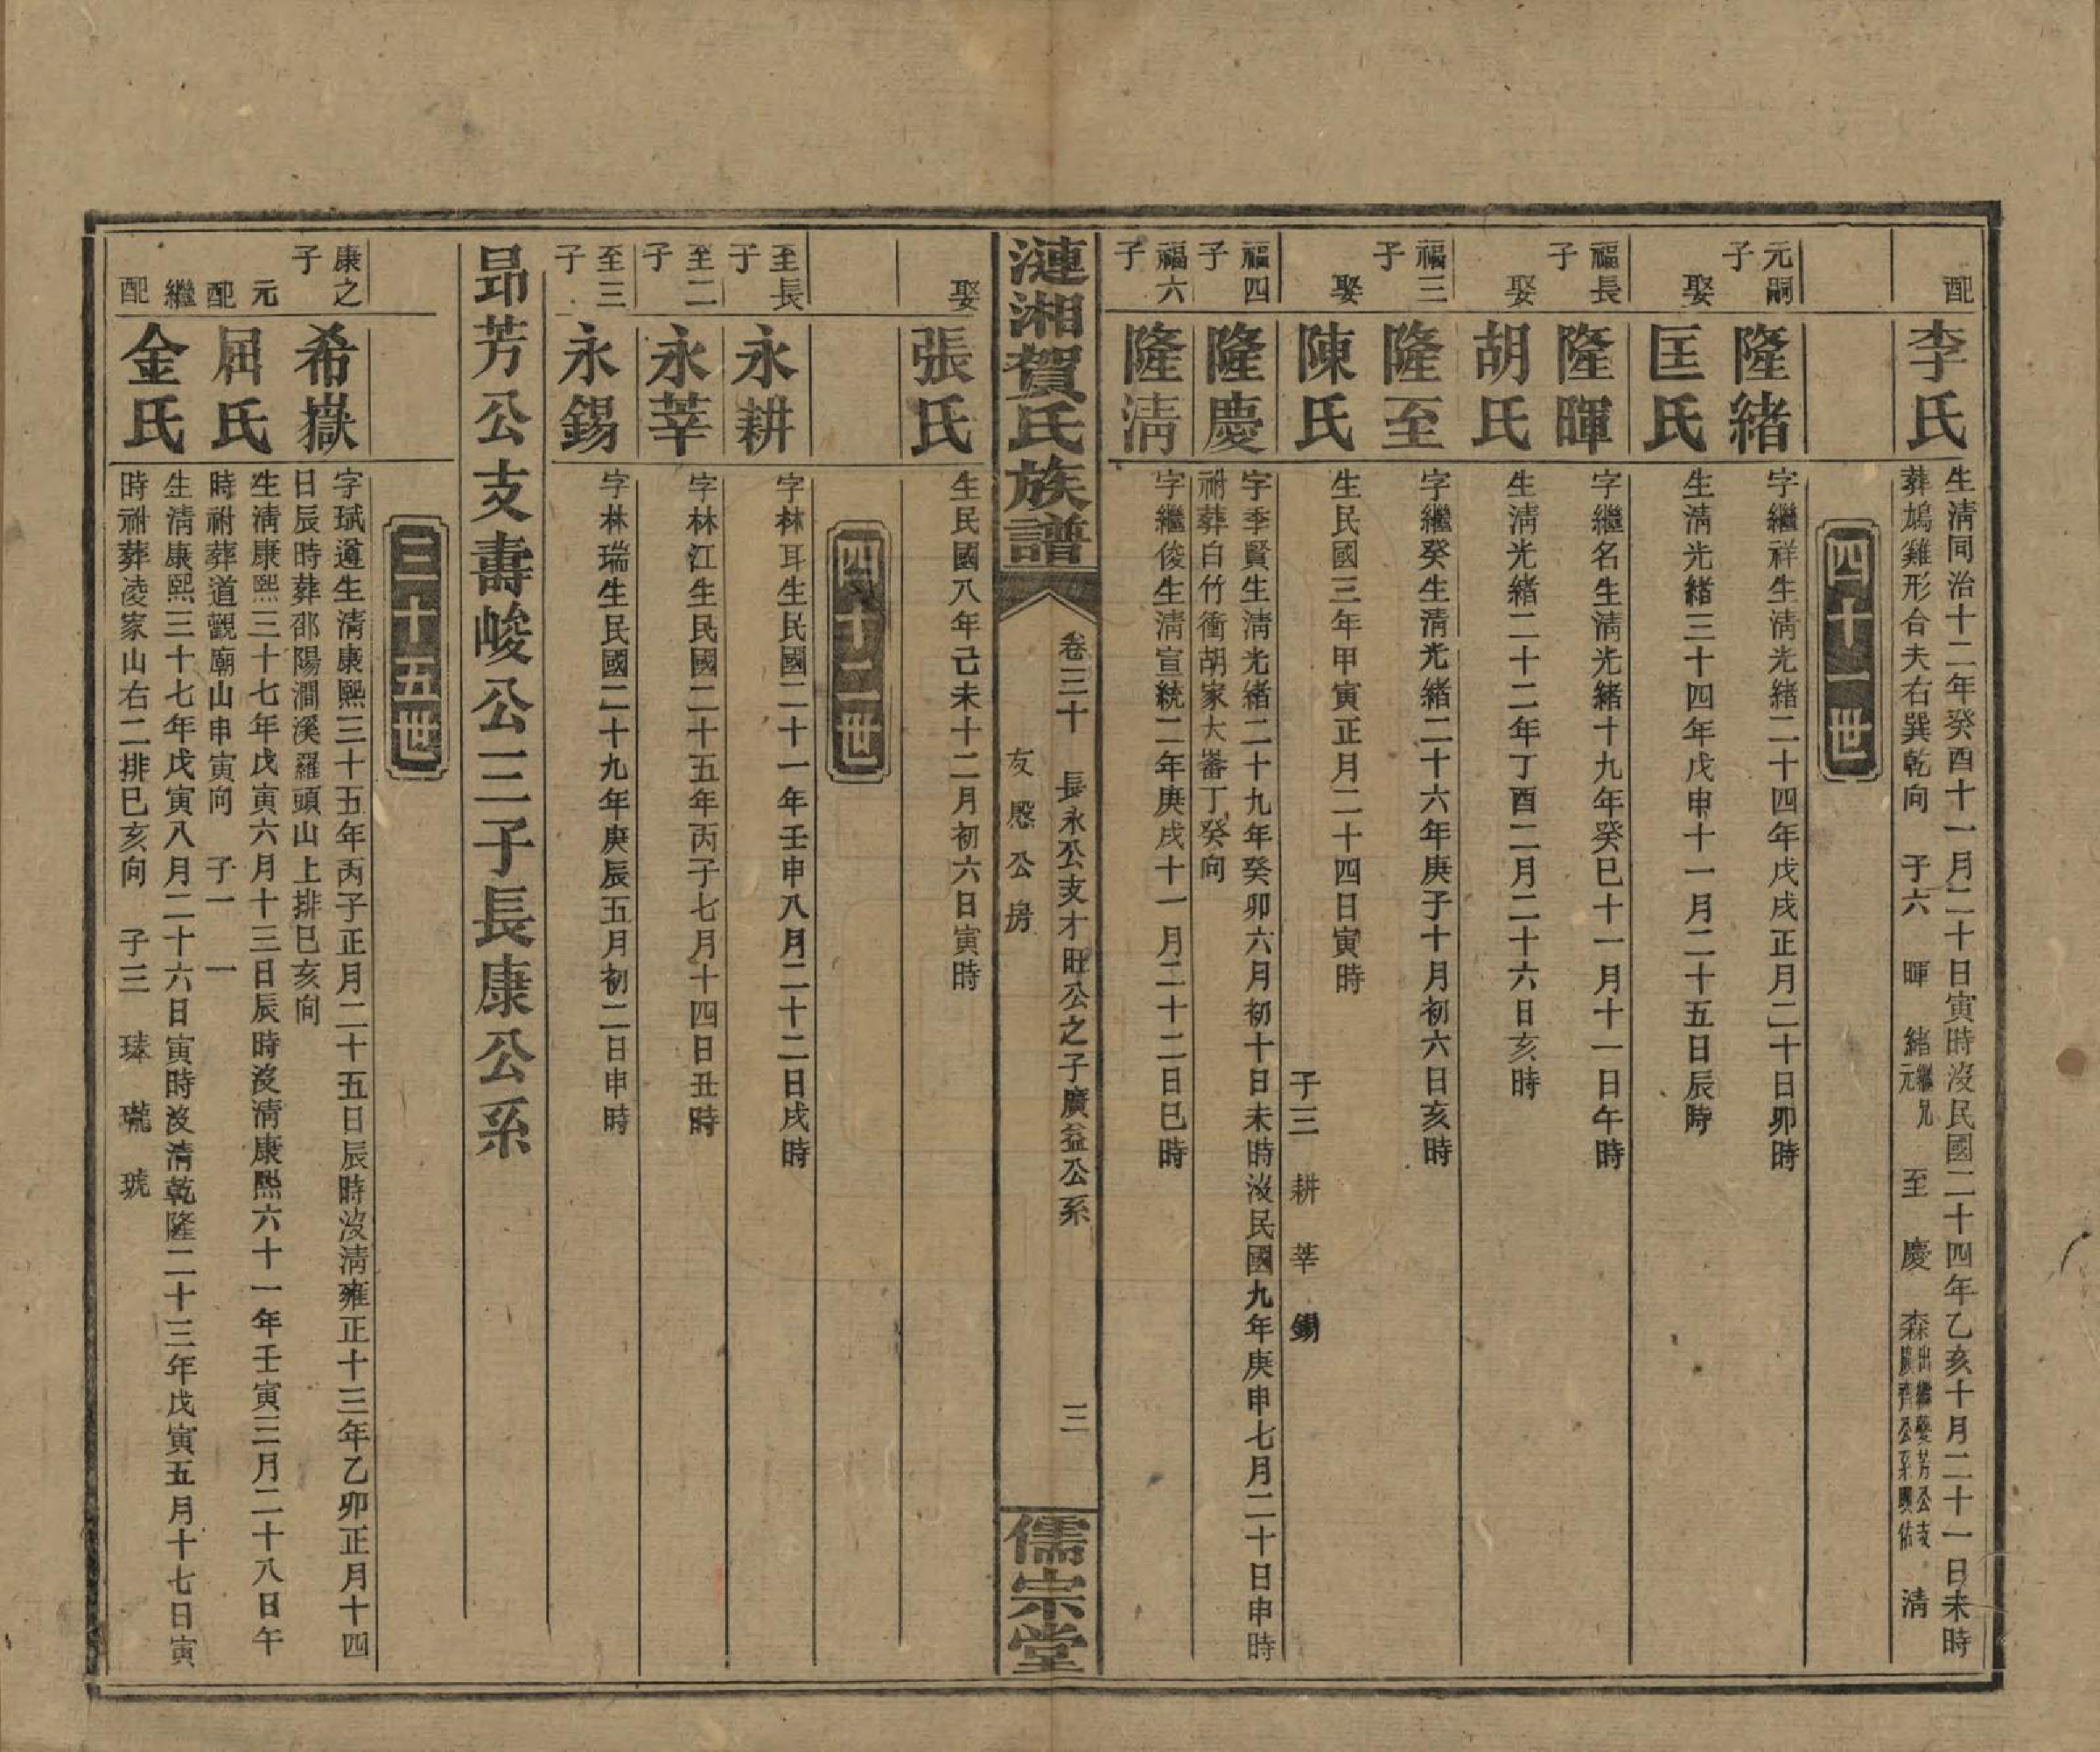 配
李氏
生清同治十二年癸酉十一月二十日寅時沒民國二十四年乙亥十月二十一日未時
葬鳩雞形合夫右巽乾向 子六 暉 緒繼兄元 至 慶 森出繼變芳公支廣齊公系興佑 清
四十一世
元嗣子
隆緒
字繼祥生清光緒二十四年戊戌正月二十日卯時
娶
匡氏
生清光緒三十四年戊申十一月二十五日辰時
福長子
隆暉
字繼名生清光緒十九年癸巳十一月十一日午時
娶
胡氏
生清光緒二十二年丁酉二月二十六日亥時
福三子
隆至
字繼癸生清光緒二十六年庚子十月初六日亥時
娶
陳氏
生民國三年甲寅正月二十四日寅時
子三 耕 莘 錫
福四子
隆慶
字季賢生清光緒二十九年癸卯六月初十日未時沒民國九年庚申七月二十日申時
祔葬白竹衝胡家大崙丁癸向
福六子
隆清
字繼俊生清宣統二年庚戌十一月二十二日巳時
漣湘賀氏族譜
卷三十 長永公支才旺公之子廣益公系
友愍公房
三
儒宗堂
娶
張氏
生民國八年己未十二月初六日寅時
四十二世
至長子
永耕
字林耳生民國二十一年壬申八月二十二日戌時
至二子
永莘
字林江生民國二十五年丙子七月十四日丑時
至三子
永錫
字林瑞生民國二十九年庚辰五月初二日申時
昻芳公支壽峻公三子長康公系
三十五世
康之子
希嶽
字珷遵生清康熙三十五年丙子正月二十五日辰時沒清雍正十三年乙卯正月十四
日辰時葬邵陽澗溪羅頭山上排巳亥向
元配
屈氏
生清康熙三十七年戊寅六月十三日辰時沒清康熙六十一年壬寅三月二十八日午
時祔葬道觀廟山申寅向 子一 一
繼配
金氏
生清康熙三十七年戊寅八月二十六日寅時沒清乾隆二十三年戊寅五月十七日寅
時祔葬凌家山右二排巳亥向 子三 琫 瓏 琥